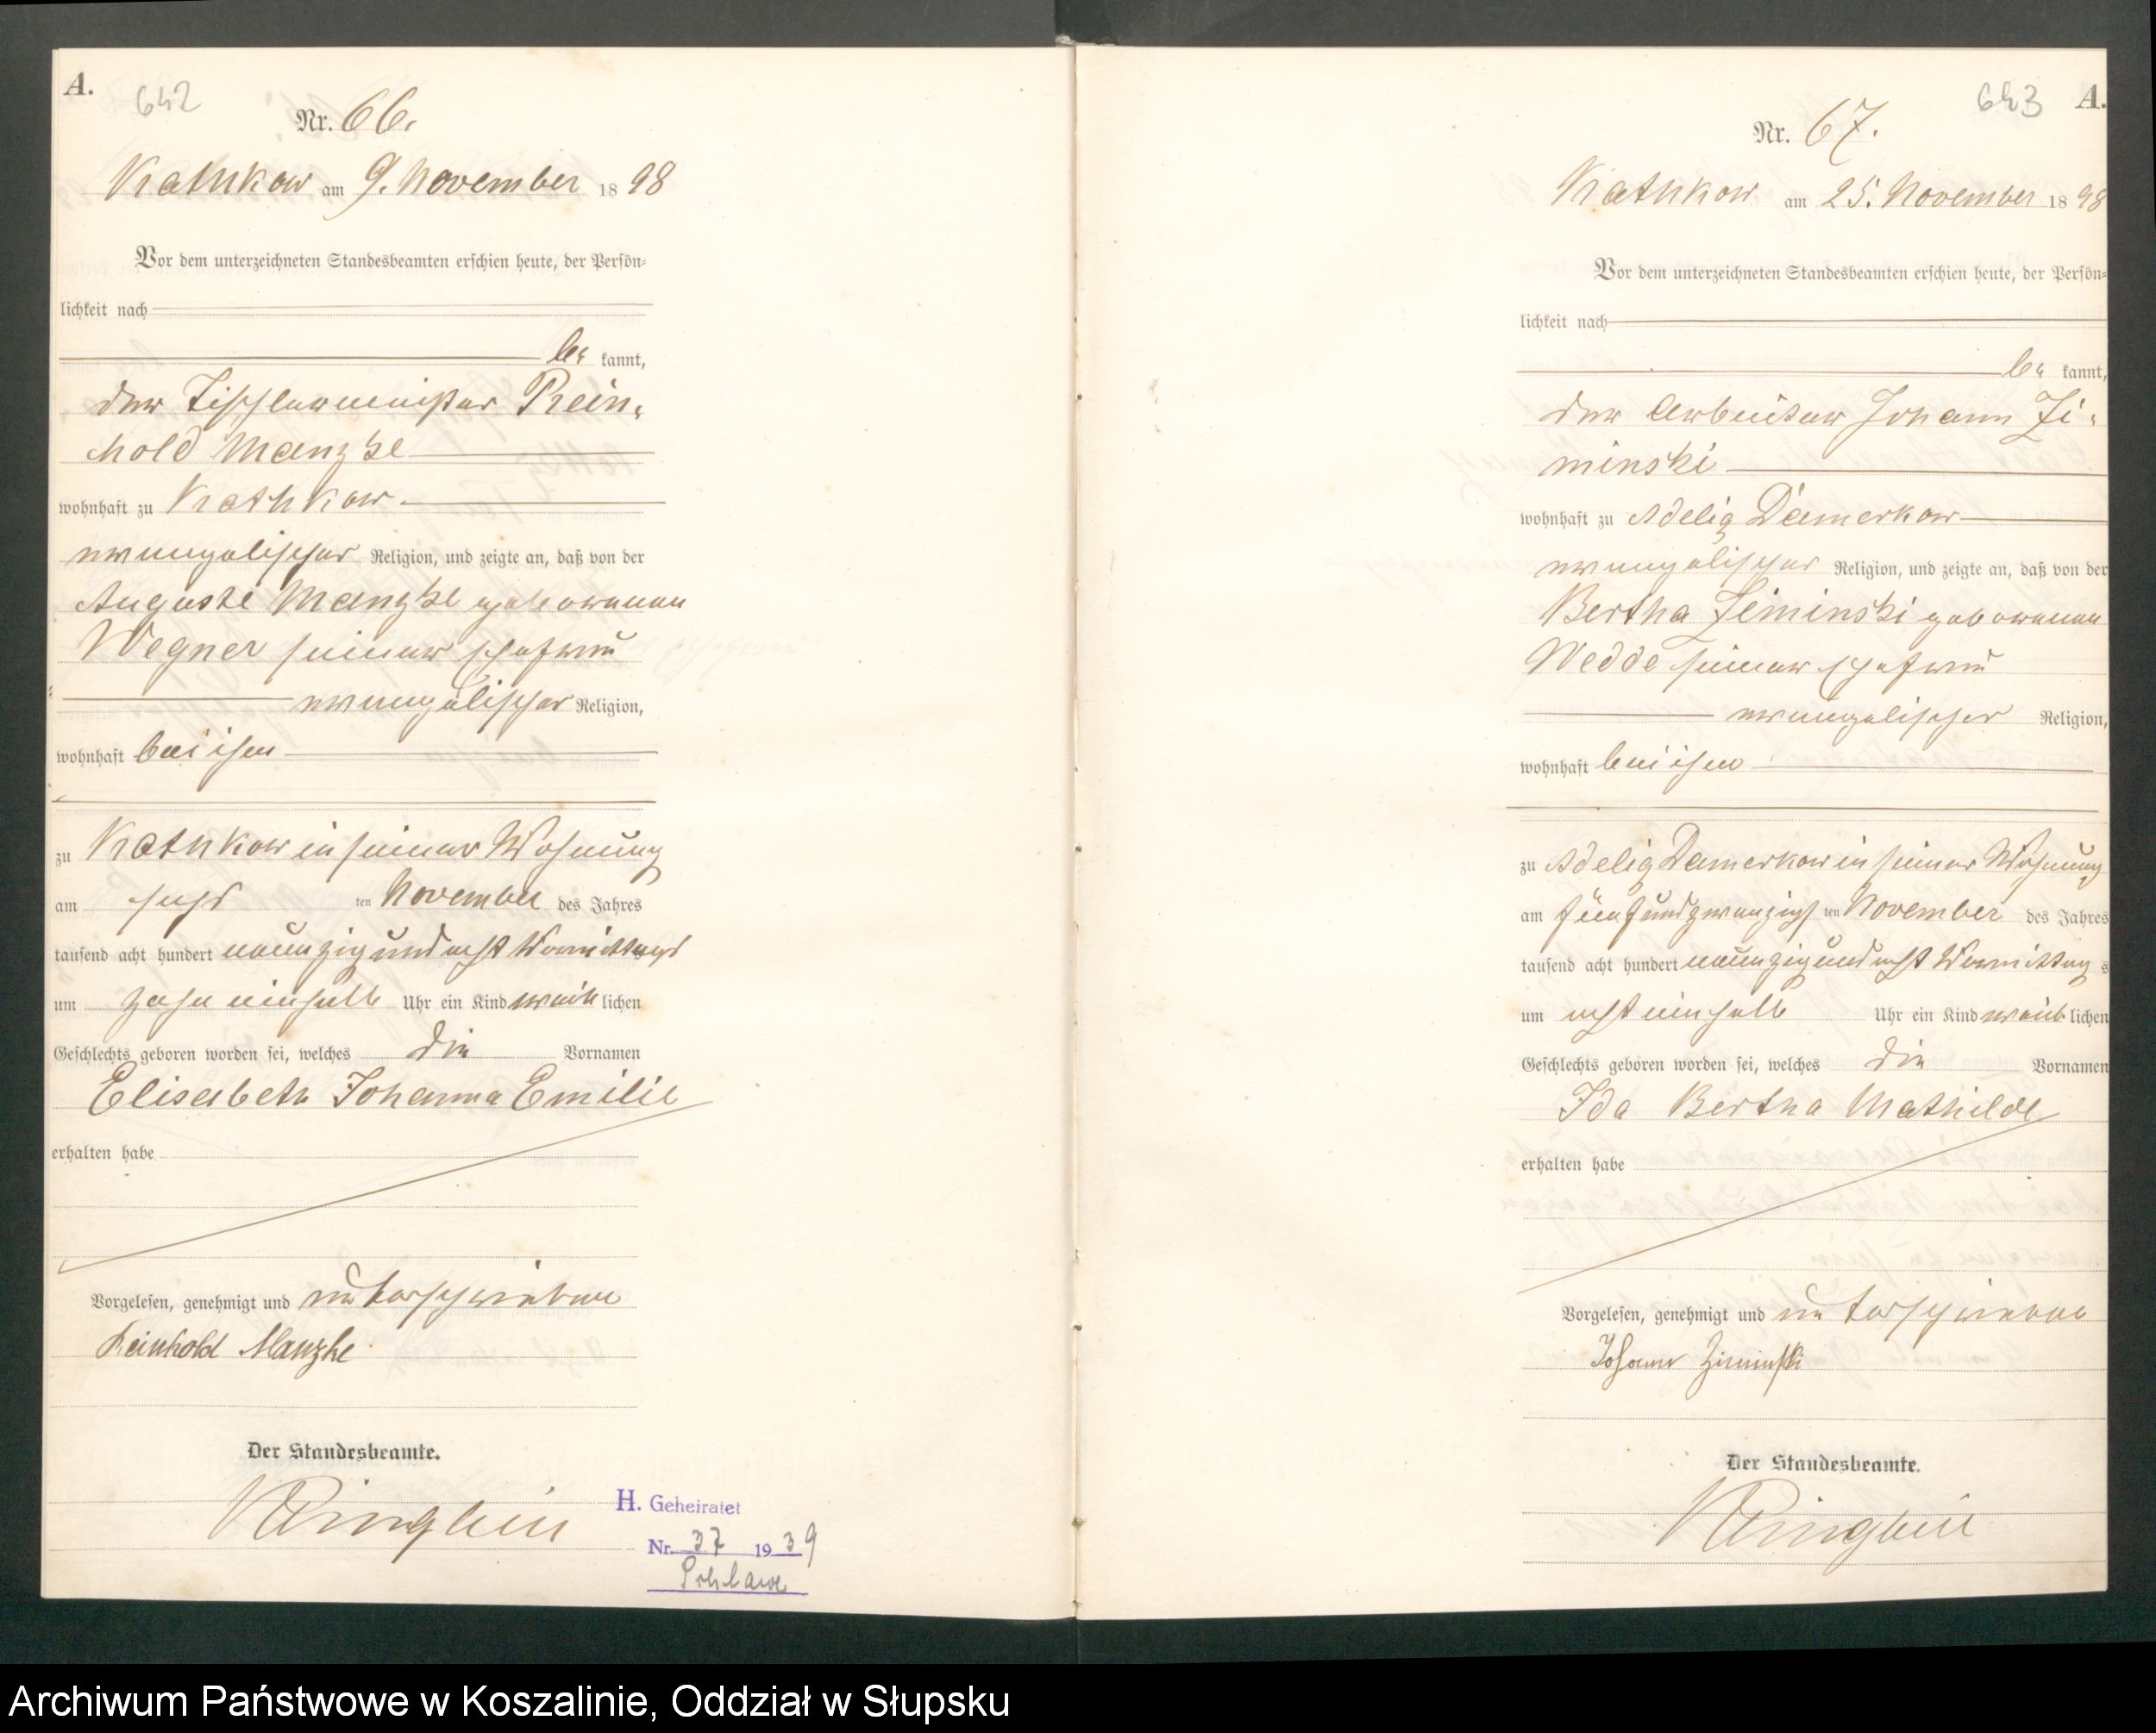 A.
642
Nr. 66.
Kathkow am 9. November 1898
Vor dem unterzeichneten Standesbeamten erschien heute, der Persön-
lichkeit nach
be kannt,
der Tischlermeister Rein-
hold Manzke
wohnhaft zu Kathkow
evangelischer Religion, und zeigte an, daß von der
Auguste Manzke geborenen
Wegner seiner Ehefrau
evangelischer Religion,
wohnhaft bei ihm
zu Kathkow in seiner Wohnung
am sechs ten November des Jahres
tausend acht hundert neunzig und acht Vormittags
um zehn einhalb Uhr ein Kind weib lichen
Geschlechts geboren worden sei, welches die Vornamen
Elisabeth Johanna Emilie
erhalten habe
Vorgelesen, genehmigt und unterschrieben
Reinhold Manzke
Der Standesbeamte.
H. Geheiratet
Nr. 37 1939
Schlawe
643
A.
Nr. 67.
Kathkow am 25. November 1898
Vor dem unterzeichneten Standesbeamten erschien heute, der Persön-
lichkeit nach
be kannt,
der Arbeiter Johann Zi-
minski
wohnhaft zu Adelig Damerkow
evangelischer Religion, und zeigte an, daß von der
Bertha Ziminski geborenen
Wedde seiner Ehefrau
evangelischer Religion,
wohnhaft bei ihm
zu Adelig Damerkow in seiner Wohnung
am fünfundzwanzigs ten November des Jahres
tausend acht hundert neunzig und acht Vormittag s
um acht einhalb Uhr ein Kind weib lichen
Geschlechts geboren worden sei, welches die Vornamen
Ida Bertha Mathilde
erhalten habe
Vorgelesen, genehmigt und unterschrieben
Johann Ziminski
Der Standesbeamte.
Archiwum Państwowe w Koszalinie, Oddział w Słupsku